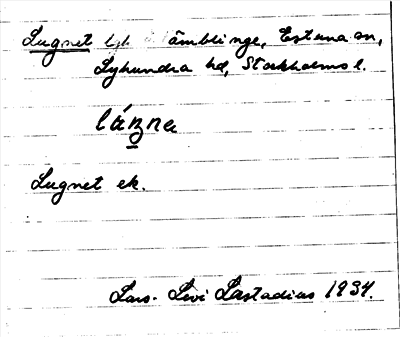 Lugnet lgh åmblinge, Estuna sn,
Lyhundra hd, Stockholms l.
Lugnet ek.
Lars-Levi Læstadius 1934.